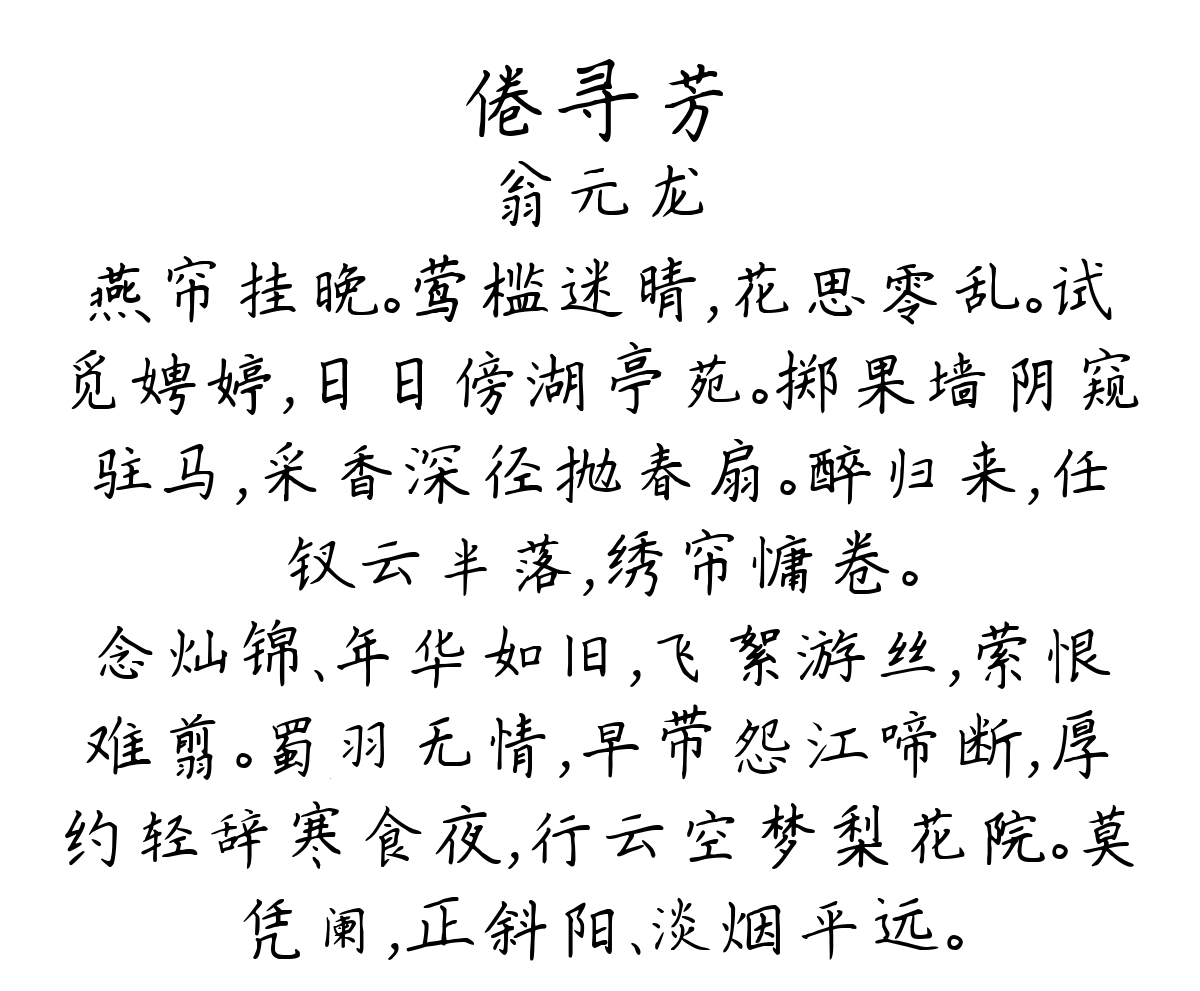 倦寻芳
翁元龙
燕帘挂晚。莺槛迷晴,花思零乱。试
觅娉婷,日日傍湖亭苑。掷果墙阴窥
驻马,采香深径抛春扇。醉归来,任
钗云半落,绣帘慵卷。
念灿锦、年华如旧,飞絮游丝,萦恨
难翦。蜀羽无情,早带怨江啼断,厚
约轻辞寒食夜,行云空梦梨花院。莫
凭阑,正斜阳、淡烟平远。